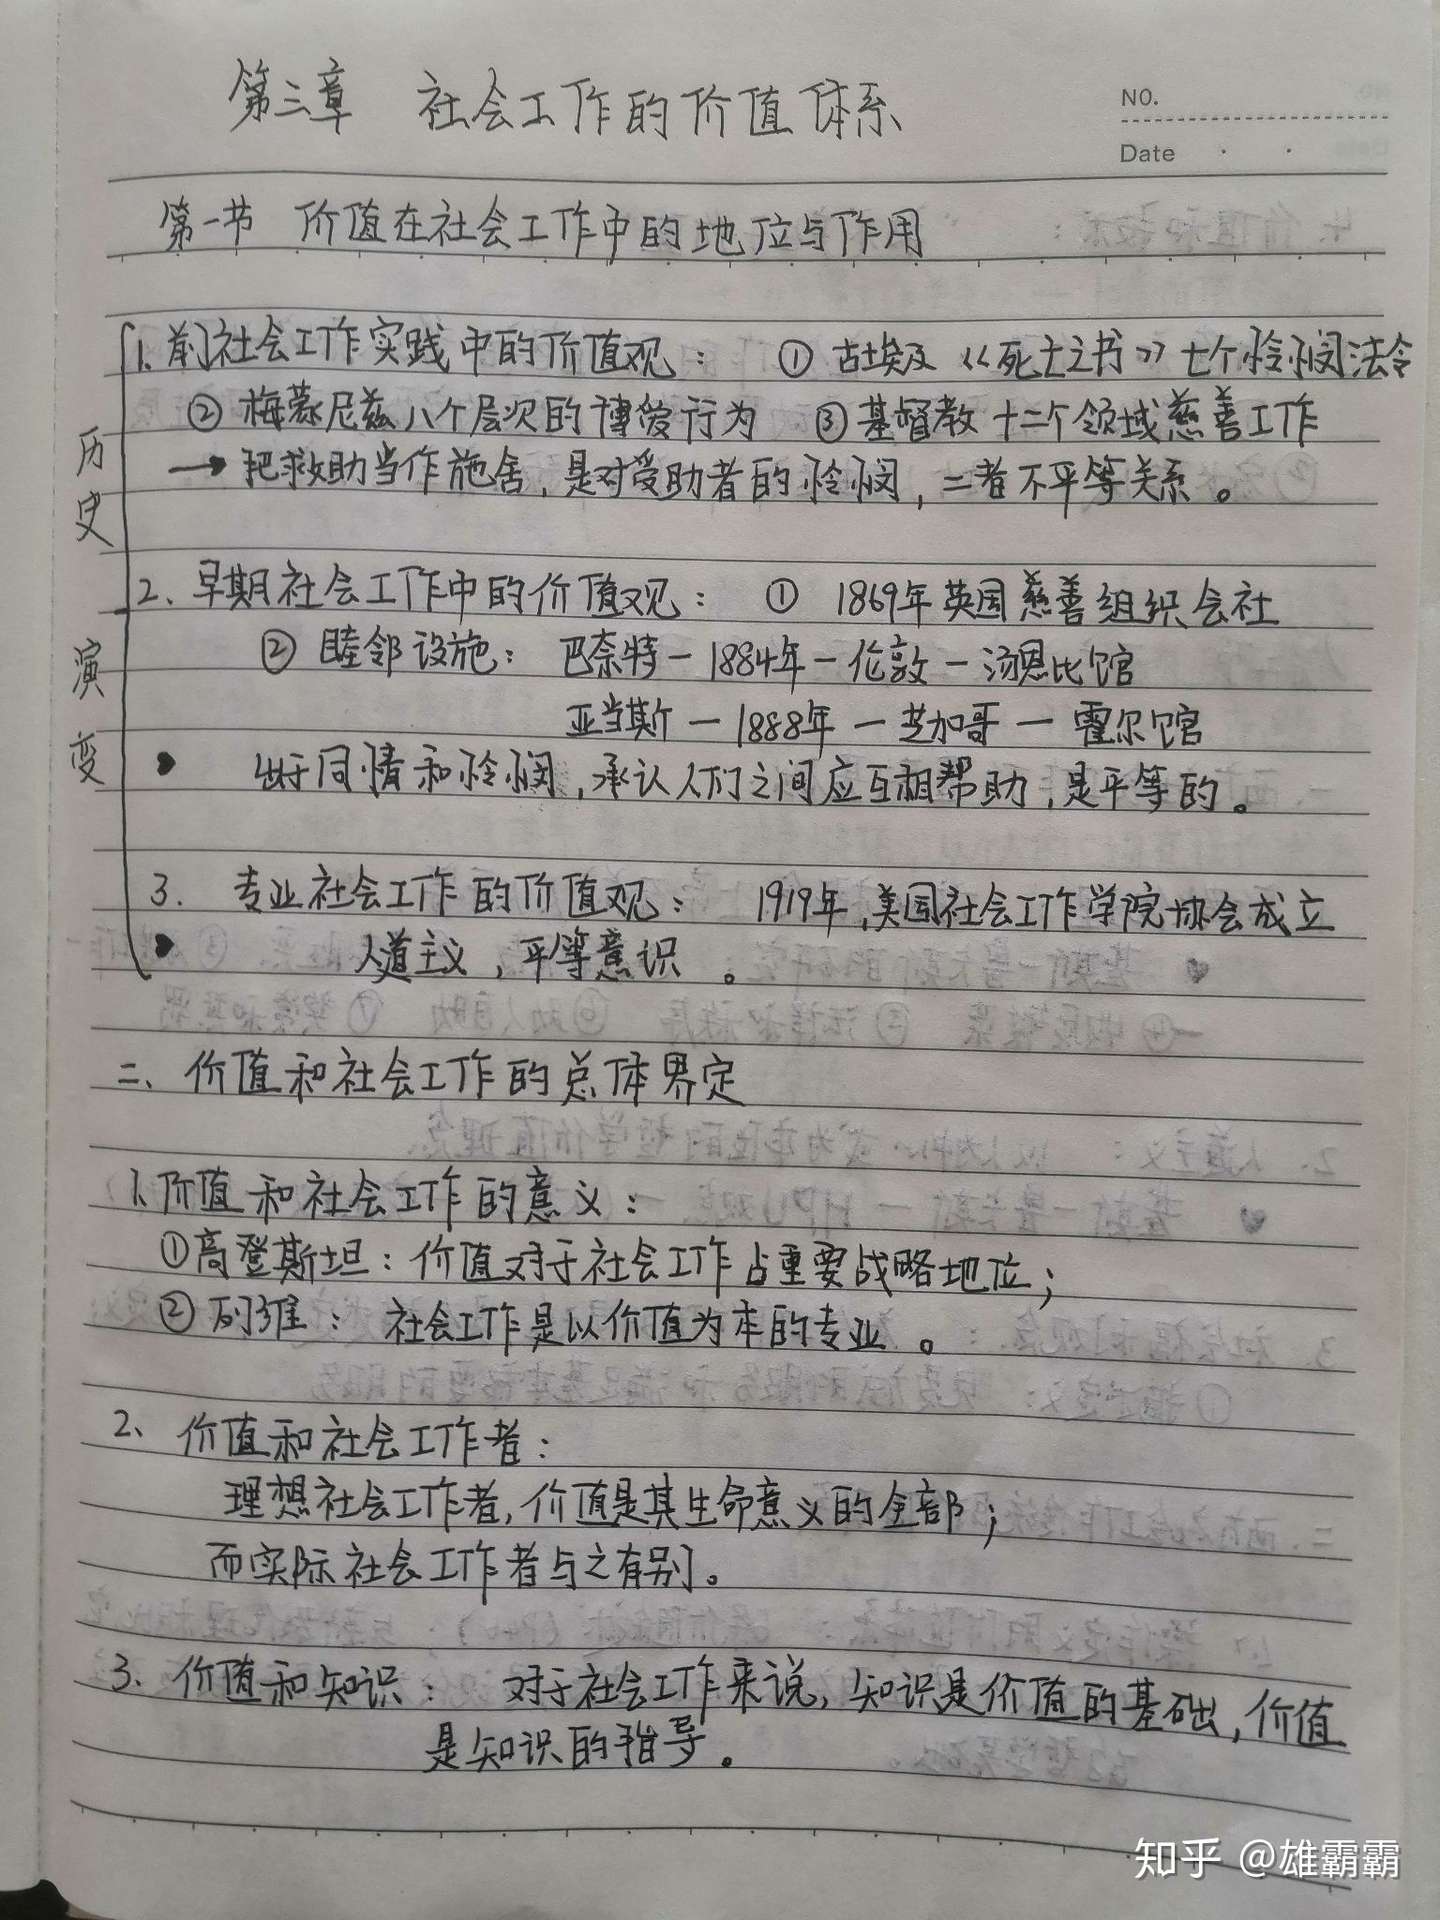 第三章 社会工作的价值体系
NO.
Date
第一节 价值在社会工作中的地位与作用
历史演变
1. 前社会工作实践中的价值观： ① 古埃及《死亡之书》七个怜悯法令
② 梅蒙尼兹八个层次的博爱行为 ③ 基督教十二个领域慈善工作
→ 把救助当作施舍，是对受助者的怜悯，二者不平等关系。
2、早期社会工作中的价值观： ① 1869年英国慈善组织会社
② 睦邻设施： 巴奈特－1884年－伦敦－汤恩比馆
亚当斯－1888年－芝加哥－霍尔馆
出于同情和怜悯，承认人们之间应互相帮助，是平等的。
3. 专业社会工作的价值观： 1919年，美国社会工作学院协会成立
人道主义，平等意识。
二、价值和社会工作的总体界定
1.价值和社会工作的意义：
①高登斯坦：价值对于社会工作占重要战略地位；
②列维： 社会工作是以价值为本的专业。
2、价值和社会工作者：
理想社会工作者，价值是其生命意义的全部；
而实际社会工作者与之有别。
3、价值和知识： 对于社会工作来说，知识是价值的基础，价值
是知识的指导。
知乎 @雄霸霸